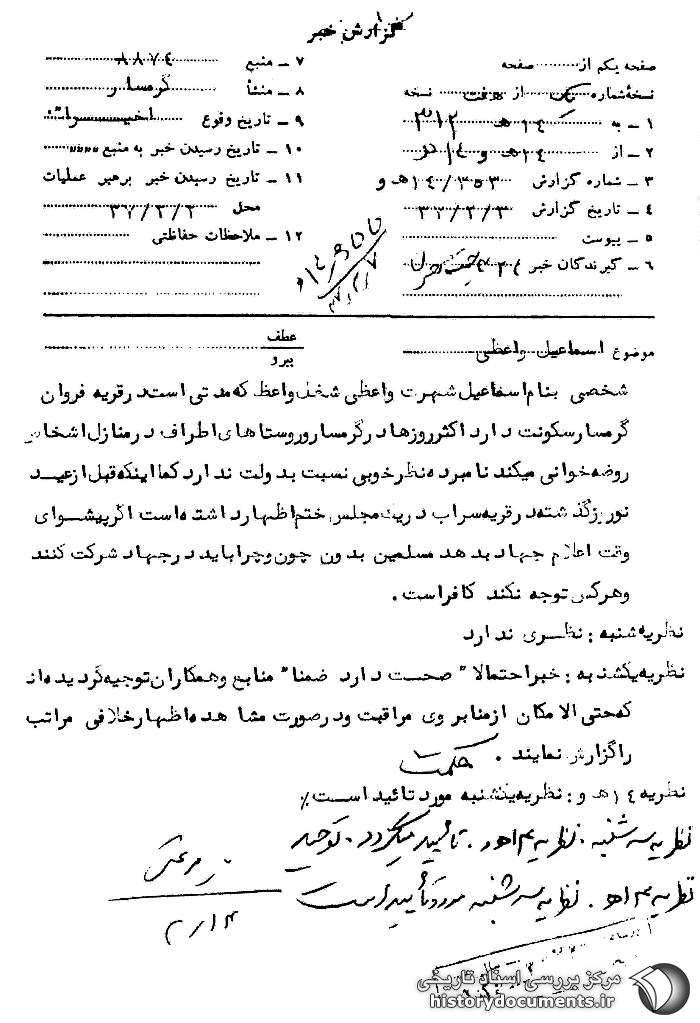 گزارش خبر
صفحه یکم از صفحه
نسخه‌شماره یک از هفت نسخه
۱ ـ به ۳۱۲
۲ ـ از ۱۴هـ و
۳ ـ شماره گزارش ۱۴/۳۵۳هـ و
۴ ـ تاریخ گزارش ۳۷/۳/۳
۵ ـ پیوست
۶ ـ گیرندگان خبر
۷ ـ منبع ۸۸۷۴
۸ ـ منشأ گرمسار
۹ ـ تاریخ وقوع اخیراً
۱۰ ـ تاریخ رسیدن خبر به منبع
۱۱ ـ تاریخ رسیدن خبر برهبر عملیات
محل ۳۷/۳/۲
۱۲ ـ ملاحظات حفاظتی
موضوع اسماعیل واعظی
عطف
پیرو
شخصی بنام اسماعیل شهرت واعظی شغل واعظ که مدتی است در قریه فروان
گرمسار سکونت دارد اکثر روزها در گرمسار و روستاهای اطراف در منازل اشخاص
روضه‌خوانی میکند نامبرده نظر خوبی نسبت بدولت ندارد کما اینکه قبل از عید
نوروز گذشته در قریه سراب در یک مجلس ختم اظهار داشته است اگر پیشوای
وقت اعلام جهاد بدهد مسلمین بدون چون و چرا باید در جهاد شرکت کنند
و هر کس توجه نکند کافر است .
نظریه شنبه : نظری ندارد
نظریه یکشنبه : خبر احتمالا" صحت دارد ضمنا" منابع و همکاران توجیه گردیده‌اند
که حتی الامکان از منابر وی مراقبت و در صورت مشاهده اظهار خلافی مراتب
را گزارش نمایند . حکمت
نظریه ۱۴هـ و : نظریه یکشنبه مورد تائید است٪
نظریه سه‌شنبه . نظریه ۱۴هـ و . تأیید میگردد . توحید
نظریه ۱۴هـ . نظریه سه‌شنبه مورد تأیید است
۲/۱۴
مرکز بررسی اسناد تاریخی
historydocuments.ir